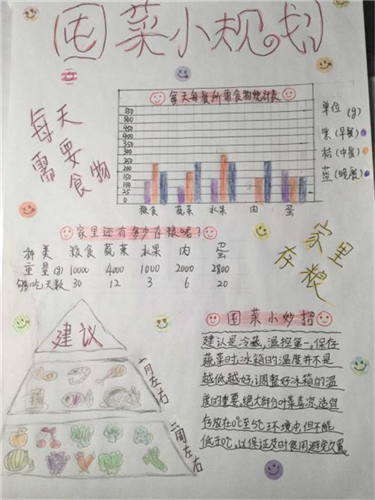 囤菜小规划
每天
需要
食物
每天每餐所需食物统计表
单位 (g)
紫(早餐)
桔(中餐)
蓝(晚餐)
25
粮食 蔬菜 水果 肉 蛋
家里还有多少存粮呢?
种类 粮食 蔬菜 水果 肉 蛋
重量(g) 10000 4000 1000 2000 2800
够吃天数 30 12 3 6 20
家里
存粮
建议
一月左右
二周左右
囤菜小妙招
建议是冷藏,温控第一,保存
蔬菜时,冰箱的温度并不是
越低越好,调整好冰箱的温
度很重要,绝大部分叶菜喜凉,适宜
存放在0℃至5℃环境中,但不能
低于0℃,以保证及时食用避免久置。